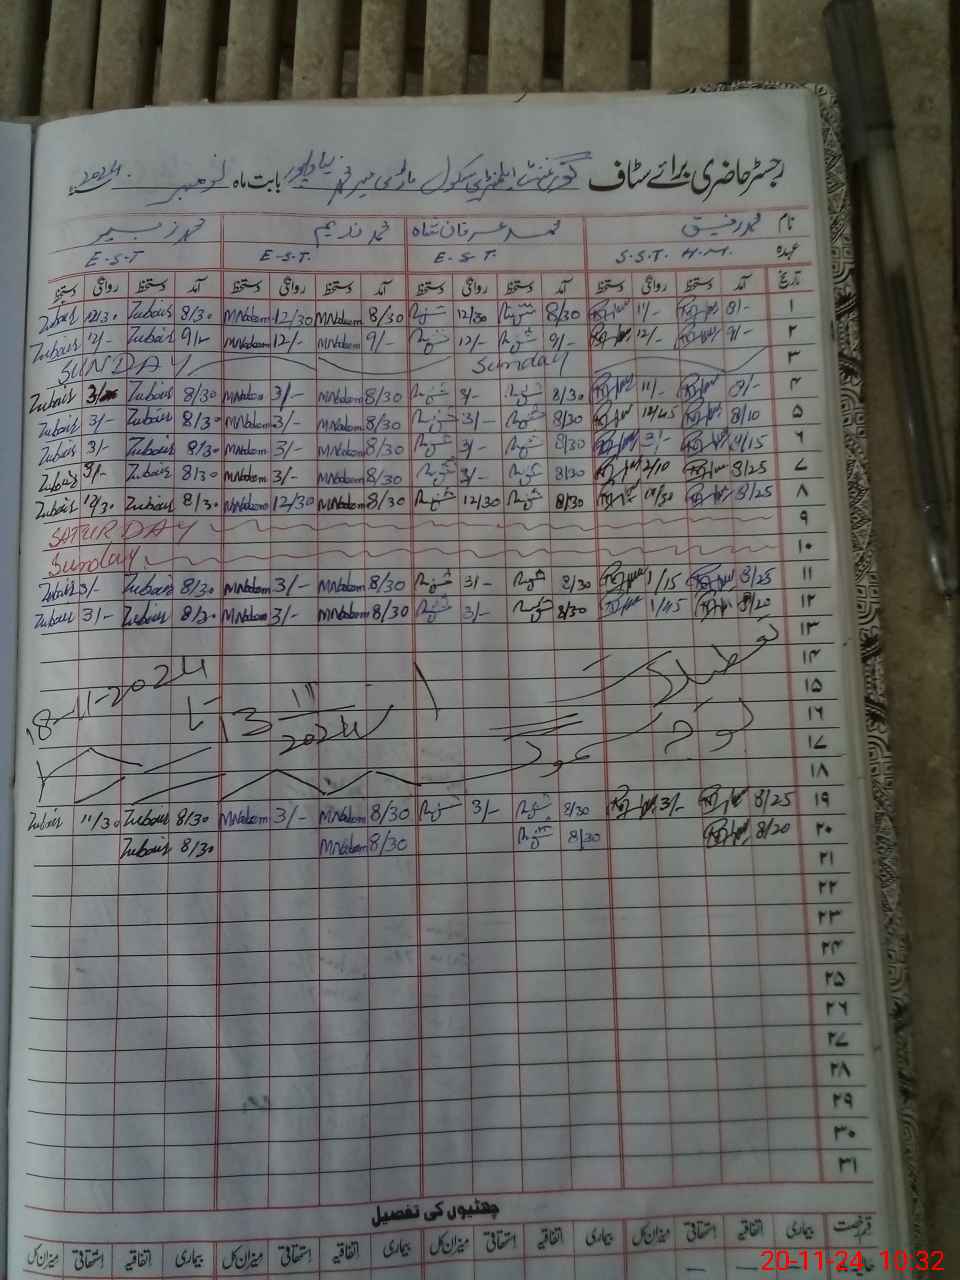 رجسٹر حاضری برائے سٹاف گورنمنٹ ایلیمنٹری سکول بابت ماہ نومبر 2024
نام محمد رفیق محمد عرفان شاہ محمد ندیم محمد زبیر
عہدہ S.S.T. H.M. E.S.T. E.S.T. E.S.T
تاریخ آمد دستخط روانگی دستخط آمد دستخط روانگی دستخط آمد دستخط روانگی دستخط آمد دستخط روانگی دستخط
۱ 8/- 11/- 8/30 12/30 8/30 MNadeem 12/30 MNadeem 8/30 Zubair 12/30 Zubair
۲ 9/- 12/- 9/- 12/- 9/- MNadeem 12/- MNadeem 9/- Zubair 12/- Zubair
۳ Sunday SUNDAY
۴ 8/- 11/- 8/30 3/- 8/30 MNadeem 3/- MNadeem 8/30 Zubair Zubair
۵ 8/10 12/45 8/30 3/- 8/30 MNadeem 3/- MNadeem 8/30 Zubair 3/- Zubair
۶ 8/30 3/- 8/30 MNadeem 3/- MNadeem 8/30 Zubair 3/- Zubair
۷ 8/25 2/10 8/30 3/- 8/30 MNadeem 3/- MNadeem 8/30 Zubair 3/- Zubair
۸ 8/25 8/30 12/30 8/30 MNadeem 12/30 MNadeem 8/30 Zubair 12/30 Zubair
۹ SATURDAY
۱۰ Sunday
۱۱ 8/25 1/15 8/30 3/- 8/30 MNadeem 3/- MNadeem 8/30 Zubair 3/- Zubair
۱۲ 8/20 1/45 8/30 3/- 8/30 MNadeem 3/- MNadeem 8/30 Zubair 3/- Zubair
۱۳
۱۴
۱۵
تعطیلات
۱۶
بوجہ سموگ 13 11 2024 تا 18-11-2024
۱۷
۱۸
۱۹ 8/25 3/- 8/30 3/- 8/30 MNadeem 3/- MNadeem 8/30 Zubair 11/30 Zubair
۲۰ 8/20 8/30 8/30 MNadeem 8/30 Zubair
۲۱
۲۲
۲۳
۲۴
۲۵
۲۶
۲۷
۲۸
۲۹
۳۰
۳۱
چھٹیوں کی تفصیل
قسم رخصت بیماری اتفاقیہ استحقاقی میزان کل بیماری اتفاقیہ استحقاقی میزان کل بیماری اتفاقیہ استحقاقی میزان کل
20-11-24 10:32